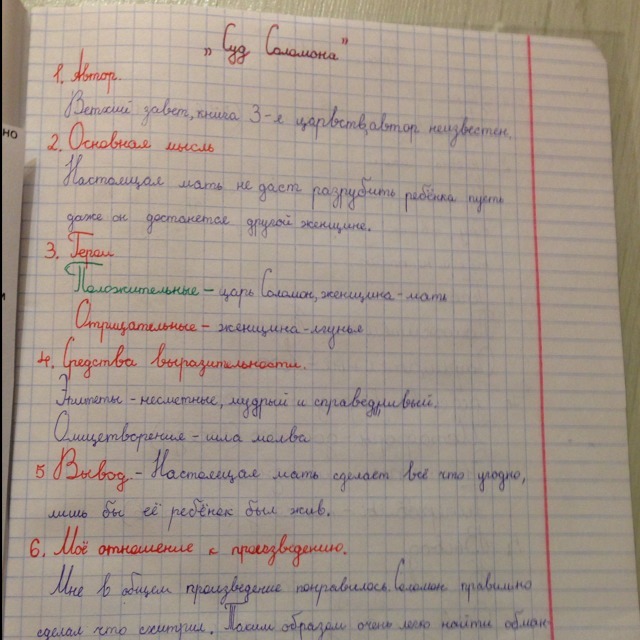 „Суд Соломона"
1. Автор.
Ветхий завет, книга 3-я царвств, автор неизвестен.
2. Основная мысль
Настоящая мать не даст разрубить ребёнка пусть
даже он достанется другой женщине.
3. Герои
Положительные – царь Соломон, женщина-мать
Отрицательные – женщина-лгунья
4. Средства выразительности.
Эпитеты - несметные, мудрый и справедливый.
Олицетворение - шла молва
5 Вывод. - Настоящая мать сделает всё что угодно,
лишь бы её ребёнок был жив.
6. Моё отношение к произведению.
Мне в общем произведение понравилось. Соломон правильно
сделал что схитрил. Таким образом очень легко найти обман-
но
и